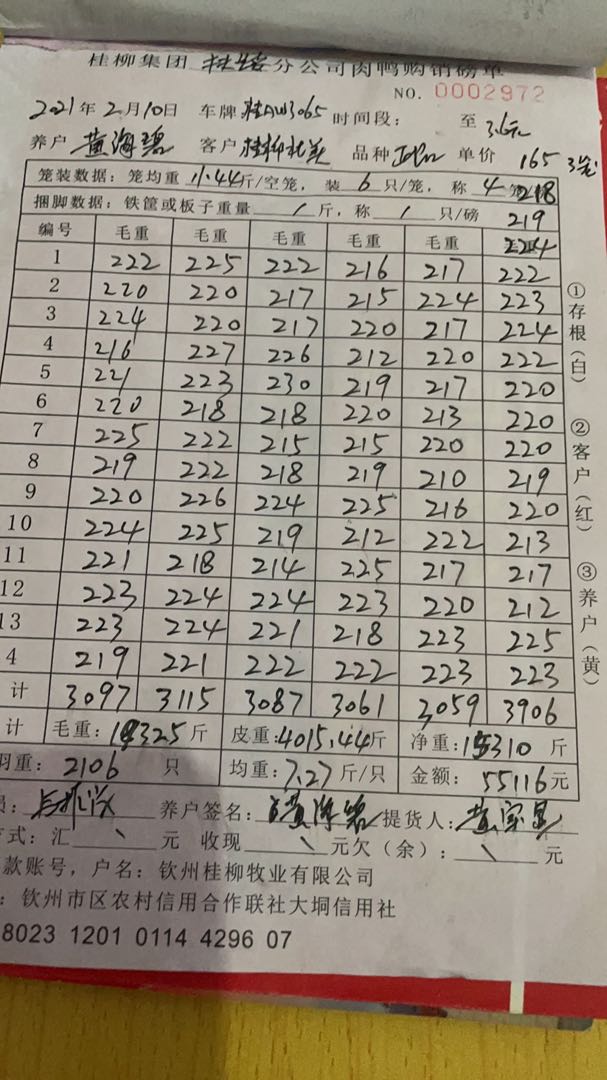 桂柳集团 分公司肉鸭购销磅单
NO. 0002972
2021年2月10日 车牌 桂AW3065 时间段： 至 3.6元
养户 黄海碧 客户 品种 单价 165
笼装数据：笼均重 11.44斤/空笼，装 6 只/笼，称 4 218
捆脚数据：铁筐或板子重量 / 斤，称 / 只/磅 219
编号 毛重 毛重 毛重 毛重 毛重 224
1 222 225 222 216 217 222
2 220 220 217 215 224 223
3 224 220 217 220 217 224
4 216 227 226 212 220 222
5 221 223 230 219 217 220
6 220 218 218 220 213 220
7 225 222 215 215 220 220
8 219 222 218 219 210 219
9 220 226 224 225 216 220
10 224 225 219 212 222 213
11 221 218 214 225 217 217
12 223 224 224 223 220 212
13 223 224 221 218 223 225
4 219 221 222 222 223 223
计 3097 3115 3087 3061 3059 3906
计 毛重：19325斤 皮重：4015.44斤 净重：15310 斤
羽重： 2106 只 均重：7.27斤/只 金额：55116元
员： 养户签名：黄海碧 提货人：
方式：汇 \ 元 收现 \ 元欠（余）： \ 元
款账号，户名：钦州桂柳牧业有限公司
：钦州市区农村信用合作联社大垌信用社
8023 1201 0114 4296 07
①存根（白）
②客户（红）
③养户（黄）